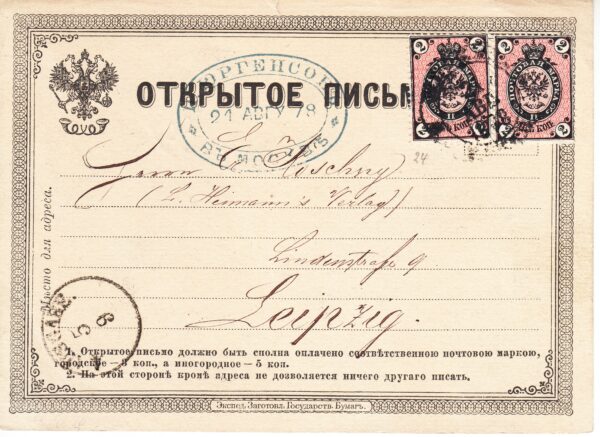 ОТКРЫТОЕ ПИСЬМО
ЮРГЕНСОНЪ
21 АВГУ. 78
ВЪ МОСКВѢ
2 2
2 2
24
Herrn
(L. Heimann's Verlag)
Lindenstraße 9
Leipzig.
Мѣсто для адреса.
6
5
1. Открытое письмо должно быть сполна оплачено соотвѣтственною почтовою маркою,
городское — 3 коп., а иногородное — 5 коп.
2. На этой сторонѣ кромѣ адреса не дозволяется ничего другаго писать.
Экспед. Заготовл. Государств. Бумагъ.